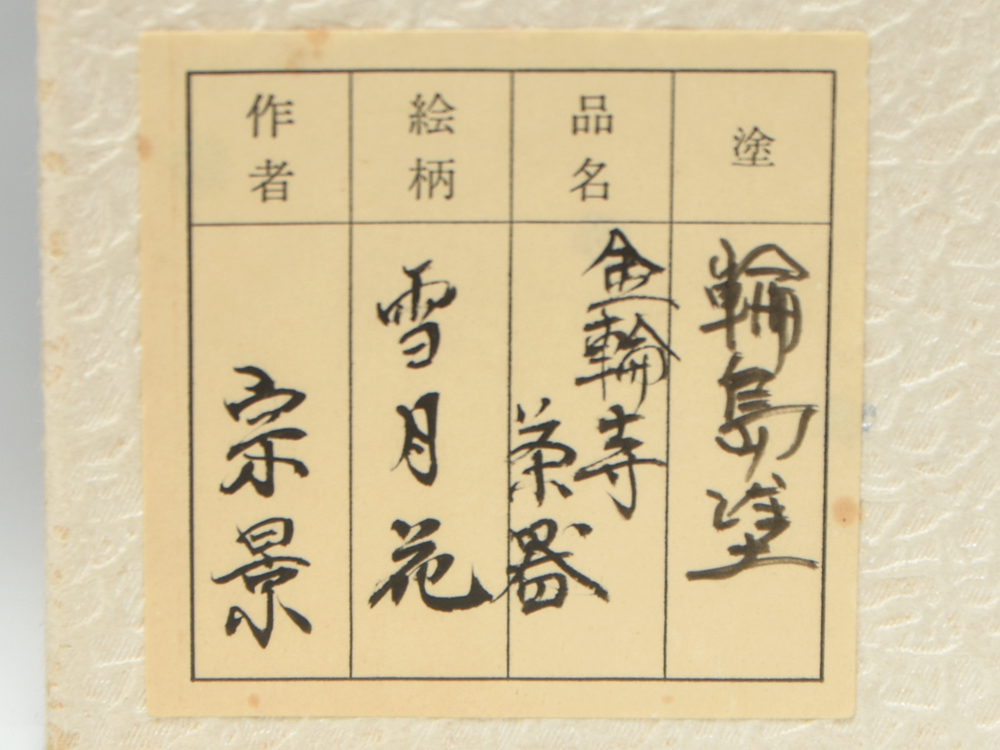 塗
輪島塗
品名
金輪寺
茶器
絵柄
雪月花
作者
宗景